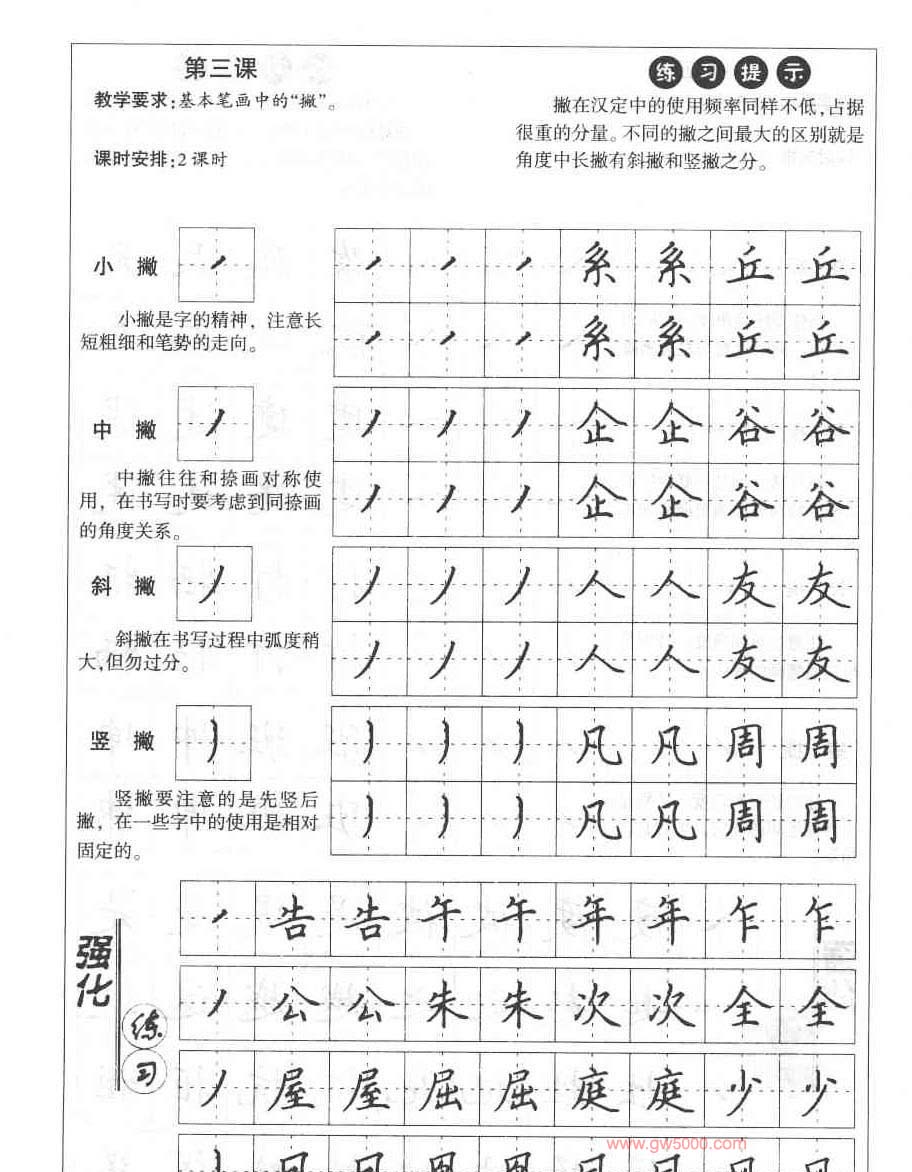 第三课
教学要求:基本笔画中的“撇”。
课时安排:2课时
练习提示
撇在汉定中的使用频率同样不低,占据
很重的分量。不同的撇之间最大的区别就是
角度中长撇有斜撇和竖撇之分。
小 撇
小撇是字的精神，注意长
短粗细和笔势的走向。
系 系 丘 丘
系 系 丘 丘
中 撇
中撇往往和捺画对称使
用，在书写时要考虑到同捺画
的角度关系。
企 企 谷 谷
企 企 谷 谷
斜 撇
斜撇在书写过程中弧度稍
大,但勿过分。
人 人 友 友
人 人 友 友
竖 撇
竖撇要注意的是先竖后
撇，在一些字中的使用是相对
固定的。
凡 凡 周 周
凡 凡 周 周
强化
练习
告 告 午 午 年 年 乍 乍
公 公 朱 朱 次 次 全 全
屋 屋 屈 屈 庭 庭 少 少
www.gw5000.com